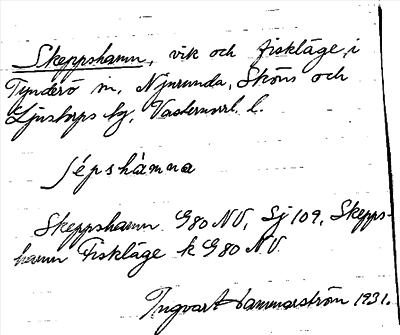 Skeppshamn, vik och fiskläge, i
Tynderö sn, Njurunda, Sköns och
Ljustorps tg, Västernorrl. l.
Skeppshamn G80 NV, Sj 109, Skepps-
hamn Fiskläge k G80 NV.
Ingvart Hammarström 1931.